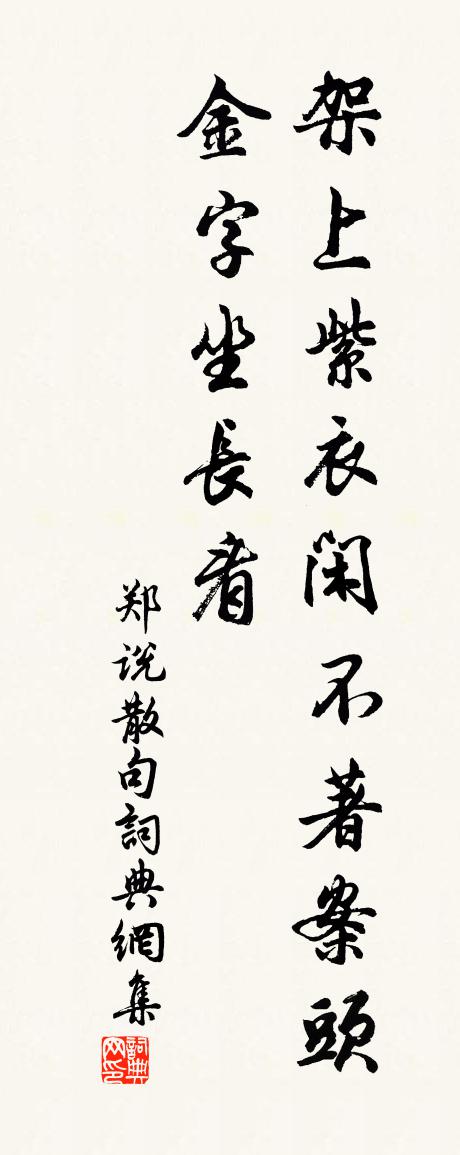 架上紫衣閑不著案頭
金字坐長看
郑说散句詞典網集
詞典网印